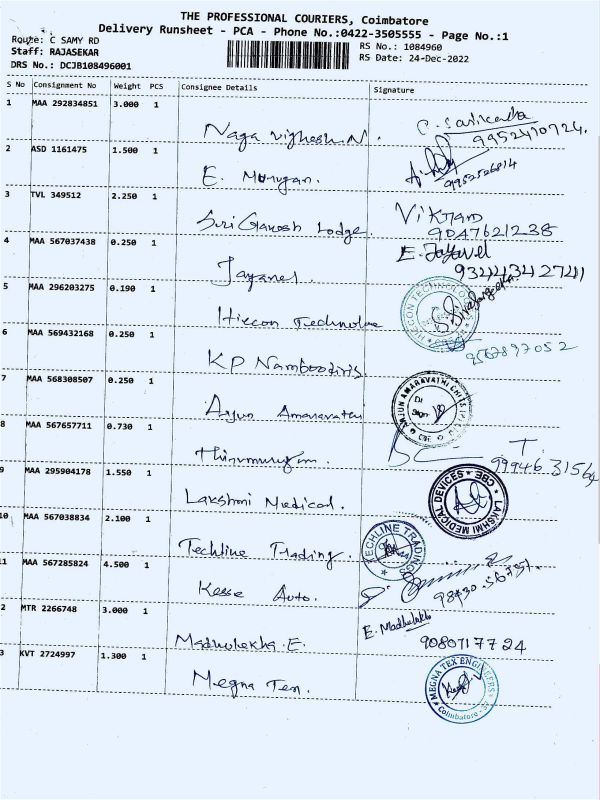 THE PROFESSIONAL COURIERS, Coimbatore
Delivery Runsheet - PCA - Phone No.:0422-3505555 - Page No.:1
Route: C SAMY RD
RS No.: 1084960
Staff: RAJASEKAR
RS Date: 24-Dec-2022
DRS No.: DCJB108496001
S No Consignment No Weight PCS Consignee Details Signature
1 MAA 292834851 3.000 1
Naga Vighesh.N. 9952410724.
2 ASD 1161475 1.500 1
E. Murugan. 9952526814
3 TVL 349512 2.250 1
Siri Ganesh Lodge. VIKRAM
9047621238
4 MAA 567037438 0.250 1
E. Jayavel
Jayavel. 9344342741
5 MAA 296203275 0.190 1
Hixcon Technolo HIXCON TECHNOLO
6 MAA 569432168 0.250 1
9567897052
KP Namboodiris
7 MAA 568308507 0.250 1
Arjun Amaravathi ARJUN AMARAVATHI
8 MAA 567657711 0.730 1
Thirumurugan T.
9994631564
9 MAA 295904178 1.550 1
Lakshmi Medical. LAKSHMI MEDICAL DEVICES CBE
10 MAA 567038834 2.100 1
Techline Trading TECHLINE TRADINGS
11 MAA 567285824 4.500 1
Kesse Auto.
2 MTR 2266748 3.000 1
E. Madhulekha
Madhulekha.E. 9080717724
3 KVT 2724997 1.300 1
Megna Tex. MEGNA TEX ENGINEERS
Coimbatore